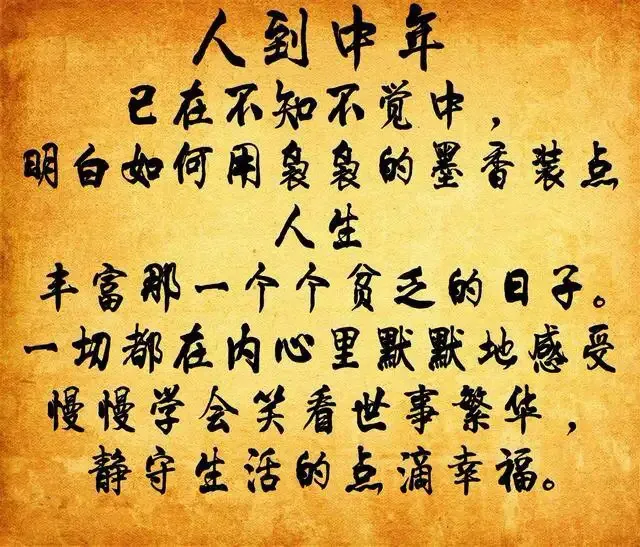 人到中年
已在不知不觉中，
明白如何用袅袅的墨香装点
人生
丰富那一个个贫乏的日子。
一切都在内心里默默地感受
慢慢学会笑看世事繁华，
静守生活的点滴幸福。